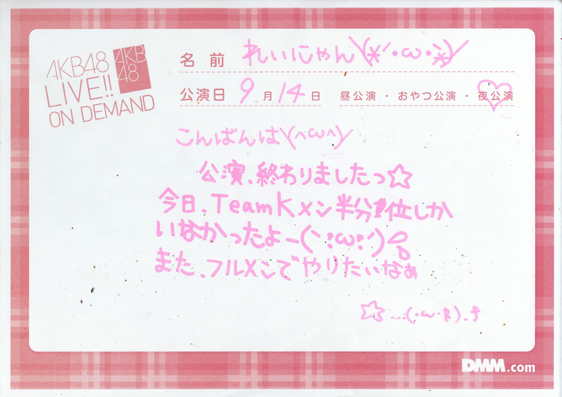 AKB48
LIVE!!
ON DEMAND
AKB
48
名前 れいにゃん\(*'・ω・*)/
公演日 9月14日 昼公演・おやつ公演・夜公演
こんばんは\(^ω^)/
公演、終わりましたっ☆
今日、TeamKメン半分位しか
いなかったよー(´;ω;`)
また、フルメンでやりたいなぁ
☆彡....(・ω・
DMM.com